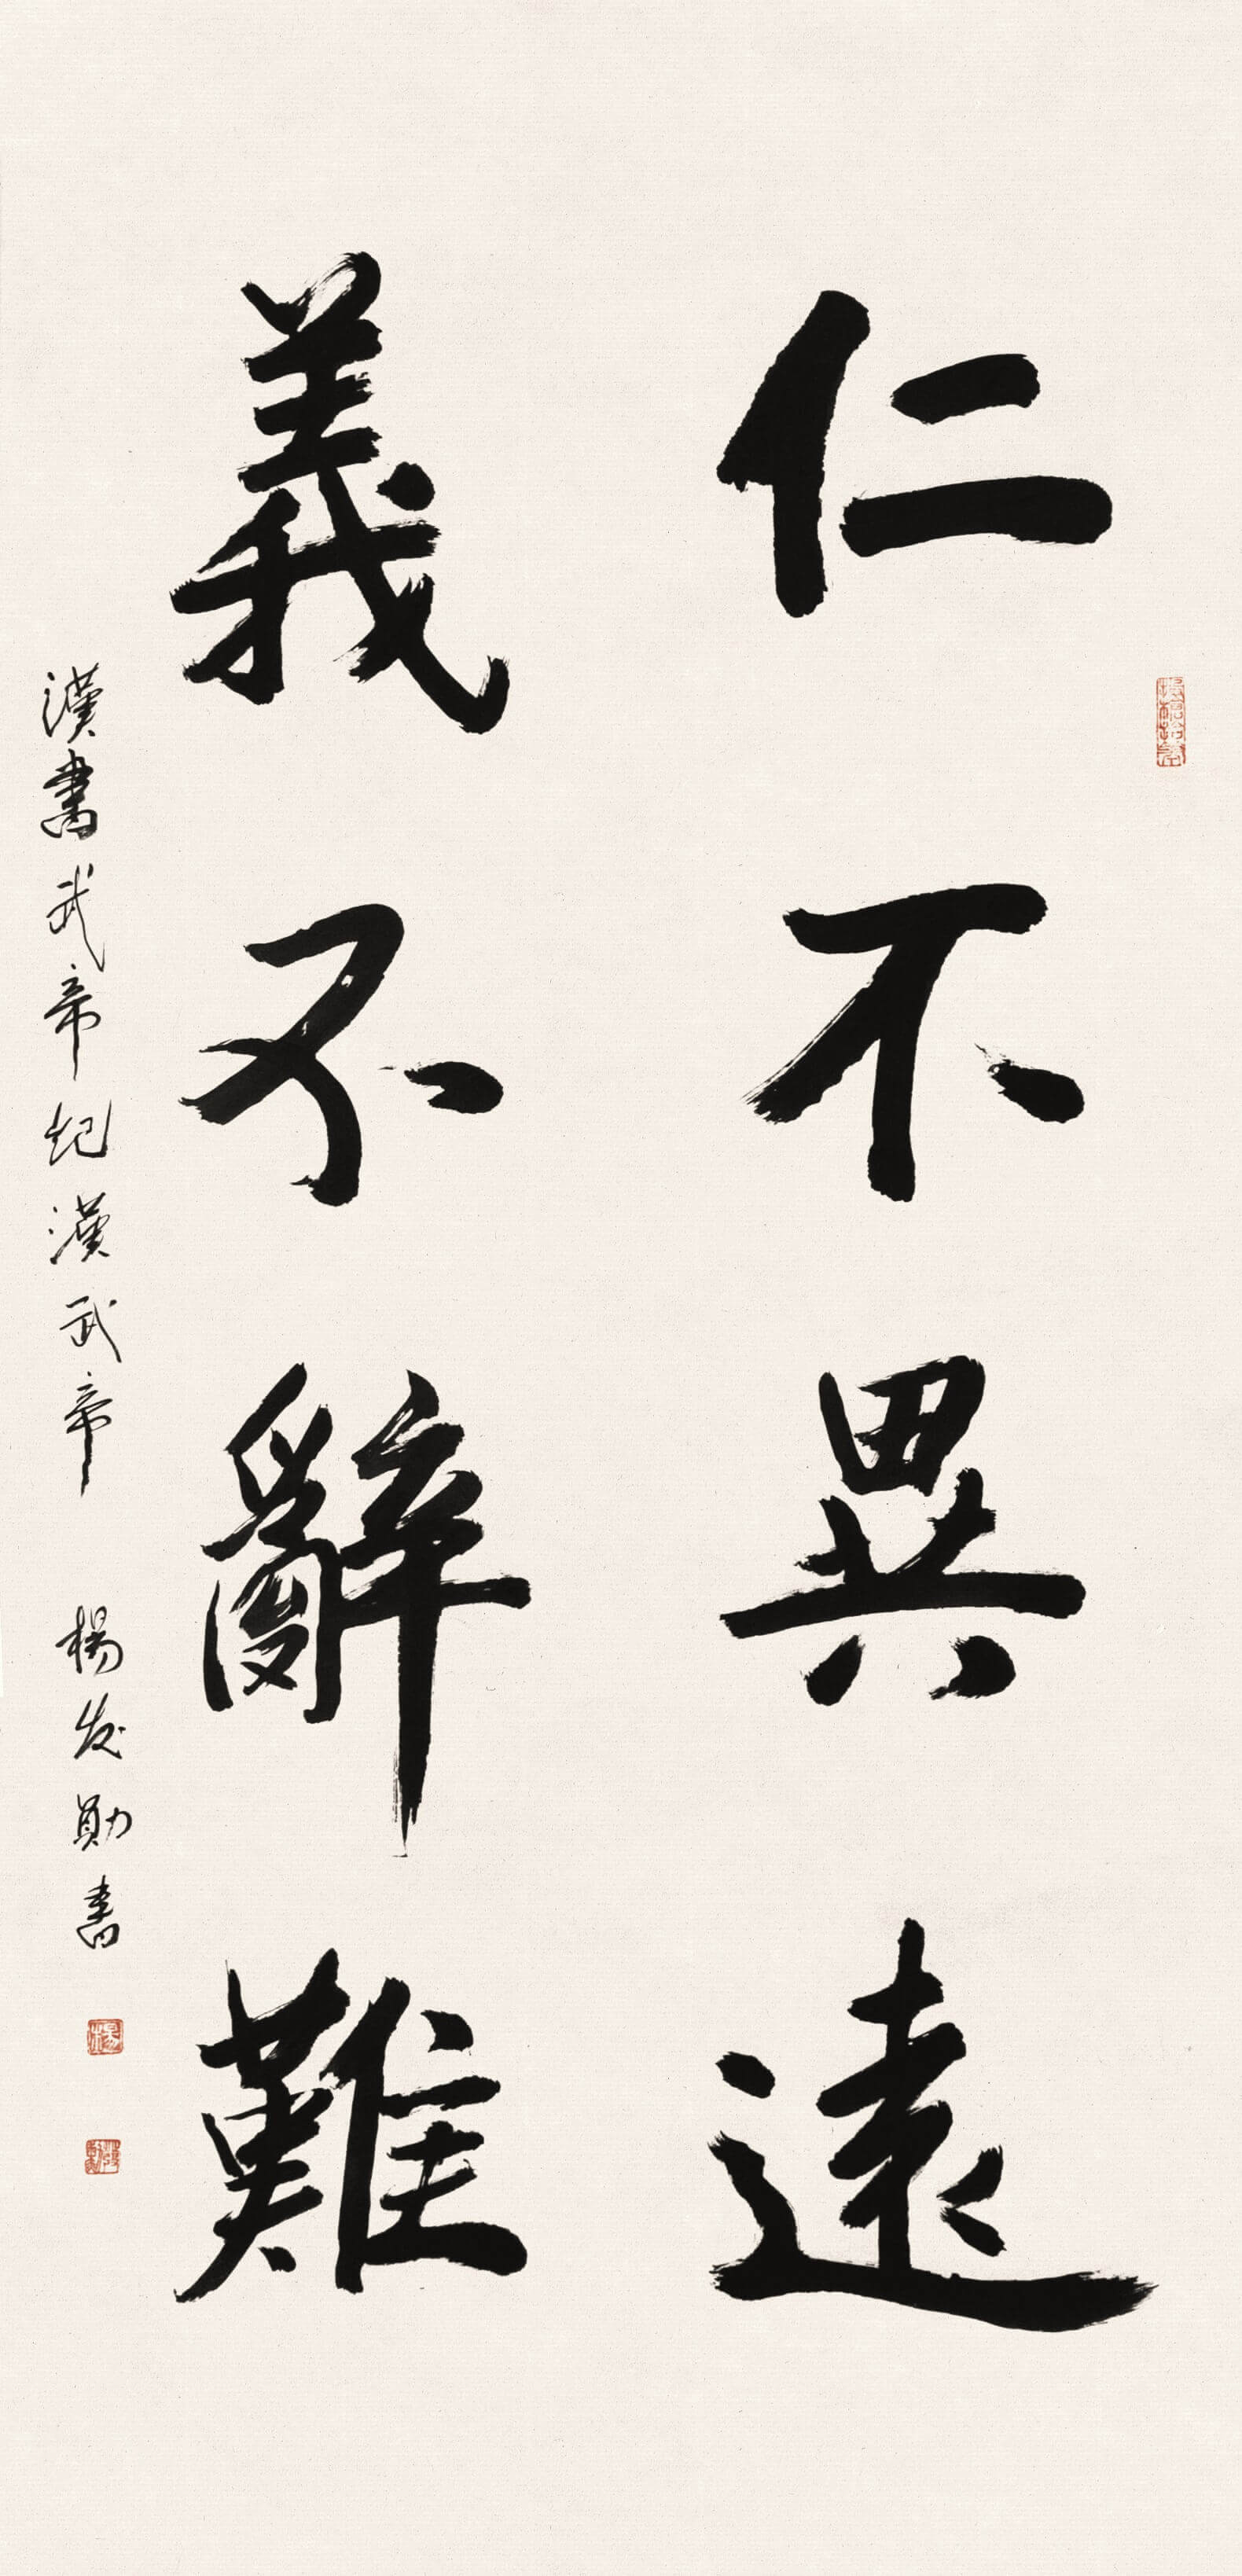 仁不異遠
義不辭難
漢書武帝紀漢武帝 楊发勛書
楊